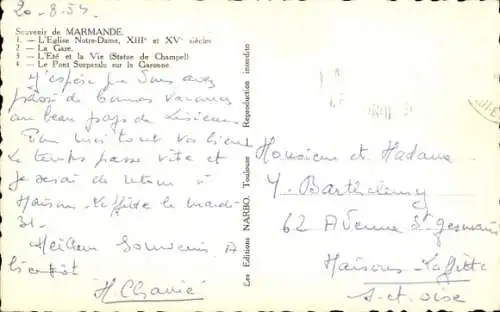 20-8-54.
Souvenir de MARMANDE.
1. — L'Eglise Notre-Dame, XIIIe et XVe siècles
2. — La Gare.
3. — L'Eté et la Vie (Statue de Champeil)
4. — Le Pont Suspendu sur la Garonne.
J'espère que vous avez
passé de bonnes vacances
au beau pays de Lisieux.
Pour moi tout va bien
le temps passe vite et
je serai de retour à
Maisons-Laffitte le mardi
31-
Meilleurs Souvenirs A
bientôt
Les Editions NARBO, Toulouse Reproduction interdite
Monsieur et Madame
Y. Barthélemy
62 Avenue St Germain
Maisons-Laffitte
S.-et-Oise